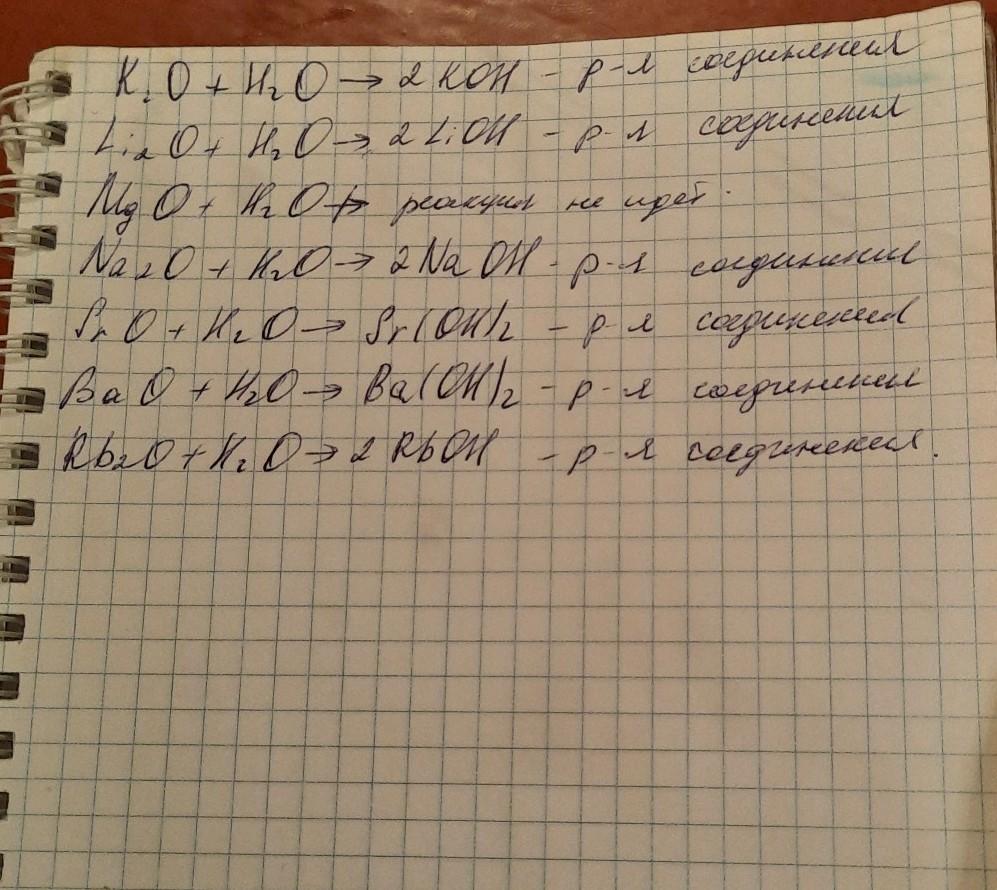 K₂O + H₂O → 2 KOH - р-я соединения
Li₂O + H₂O → 2 LiOH - р-я соединения
MgO + H₂O ↛ реакция не идёт.
Na₂O + H₂O → 2 NaOH - р-я соединения
SrO + H₂O → Sr(OH)₂ - р-я соединения
BaO + H₂O → Ba(OH)₂ - р-я соединения
Rb₂O + H₂O → 2 RbOH - р-я соединения.